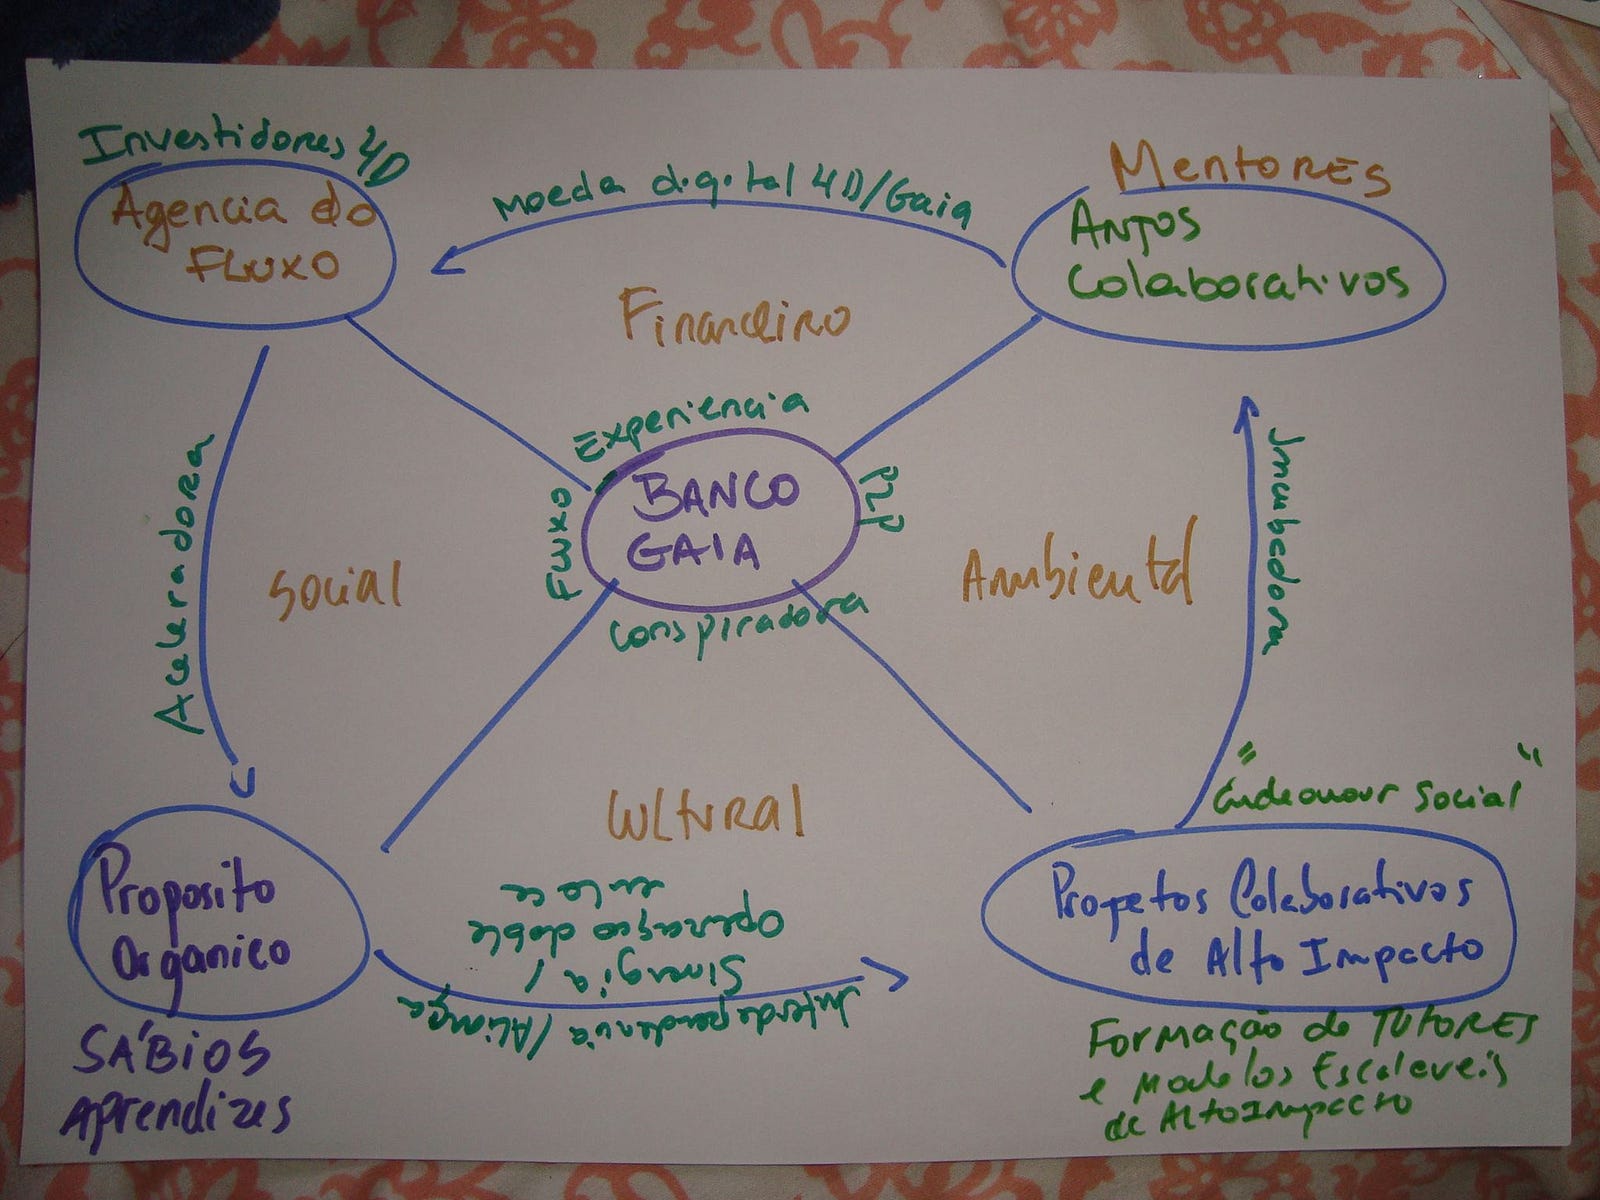 Investidores 4D
Agencia do
FLUXO
Moeda digital 4D/Gaia
MENTORES
ANJOS
Colaborativos
Financeiro
Aceleradora
Experiencia
Fluxo
BANCO
GAIA
P2P
Conspiradora
Social
Ambiental
Incubadora
Cultural
"Endeavour Social"
Proposito
Organico
SÁBIOS
Aprendizes
Interdependencia / Aliança
Sinergia /
Operação double
Projetos Colaborativos
de Alto Impacto
Formação de TUTORES
e Modelos Escaláveis
de Alto Impacto